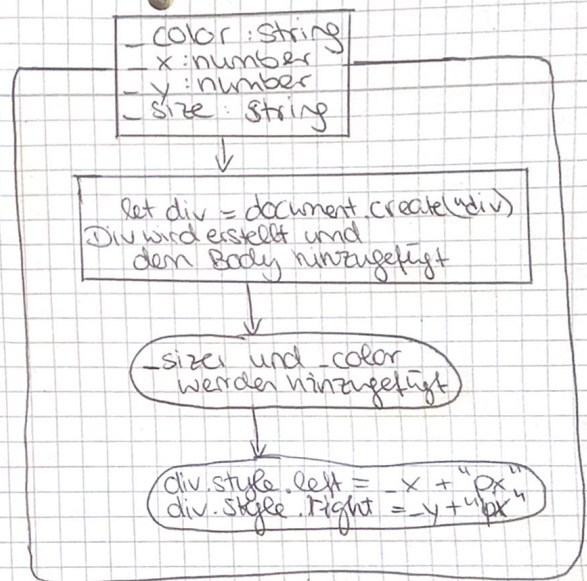 _ color : string
_ x : number
_ y : number
_ size : string
let div = document.create("div)
Div wird erstellt und
dem Body hinzugefügt
_size und _color
werden hinzugefügt
div.style.left = _x + "px"
div.style.right = _y + "px"